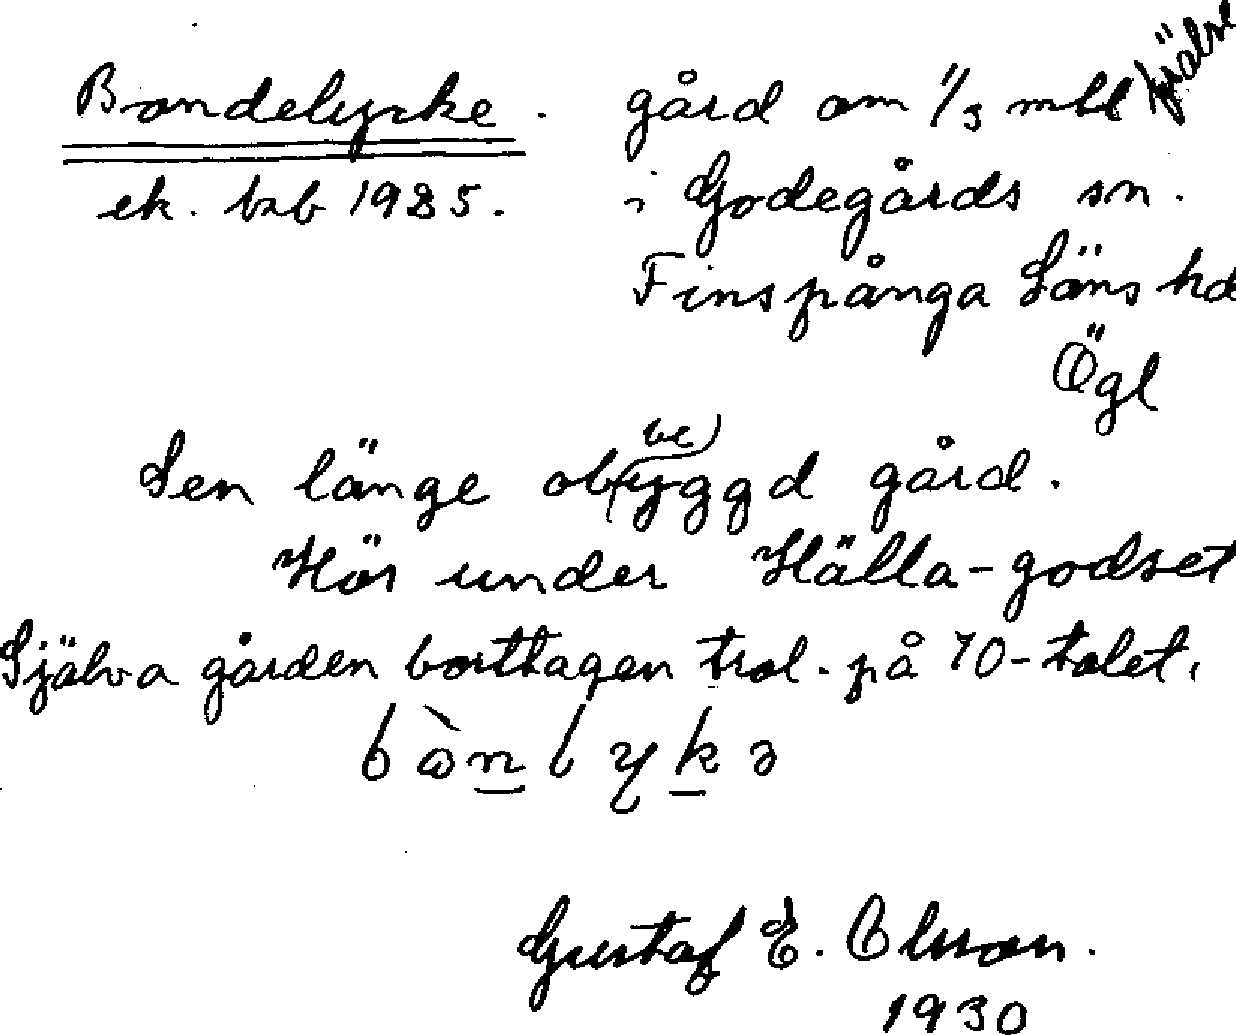 Bondelycke. gård om 1/3 mtl frälse
ek. kab 1925. i Godegårds sn.
Finspånga Läns hd
Ögl
be
Sen länge obyggd gård.
Hör under Hälla-godset
Själva gården borttagen trol. på 70-talet.
Gustaf E. Olsson.
1930